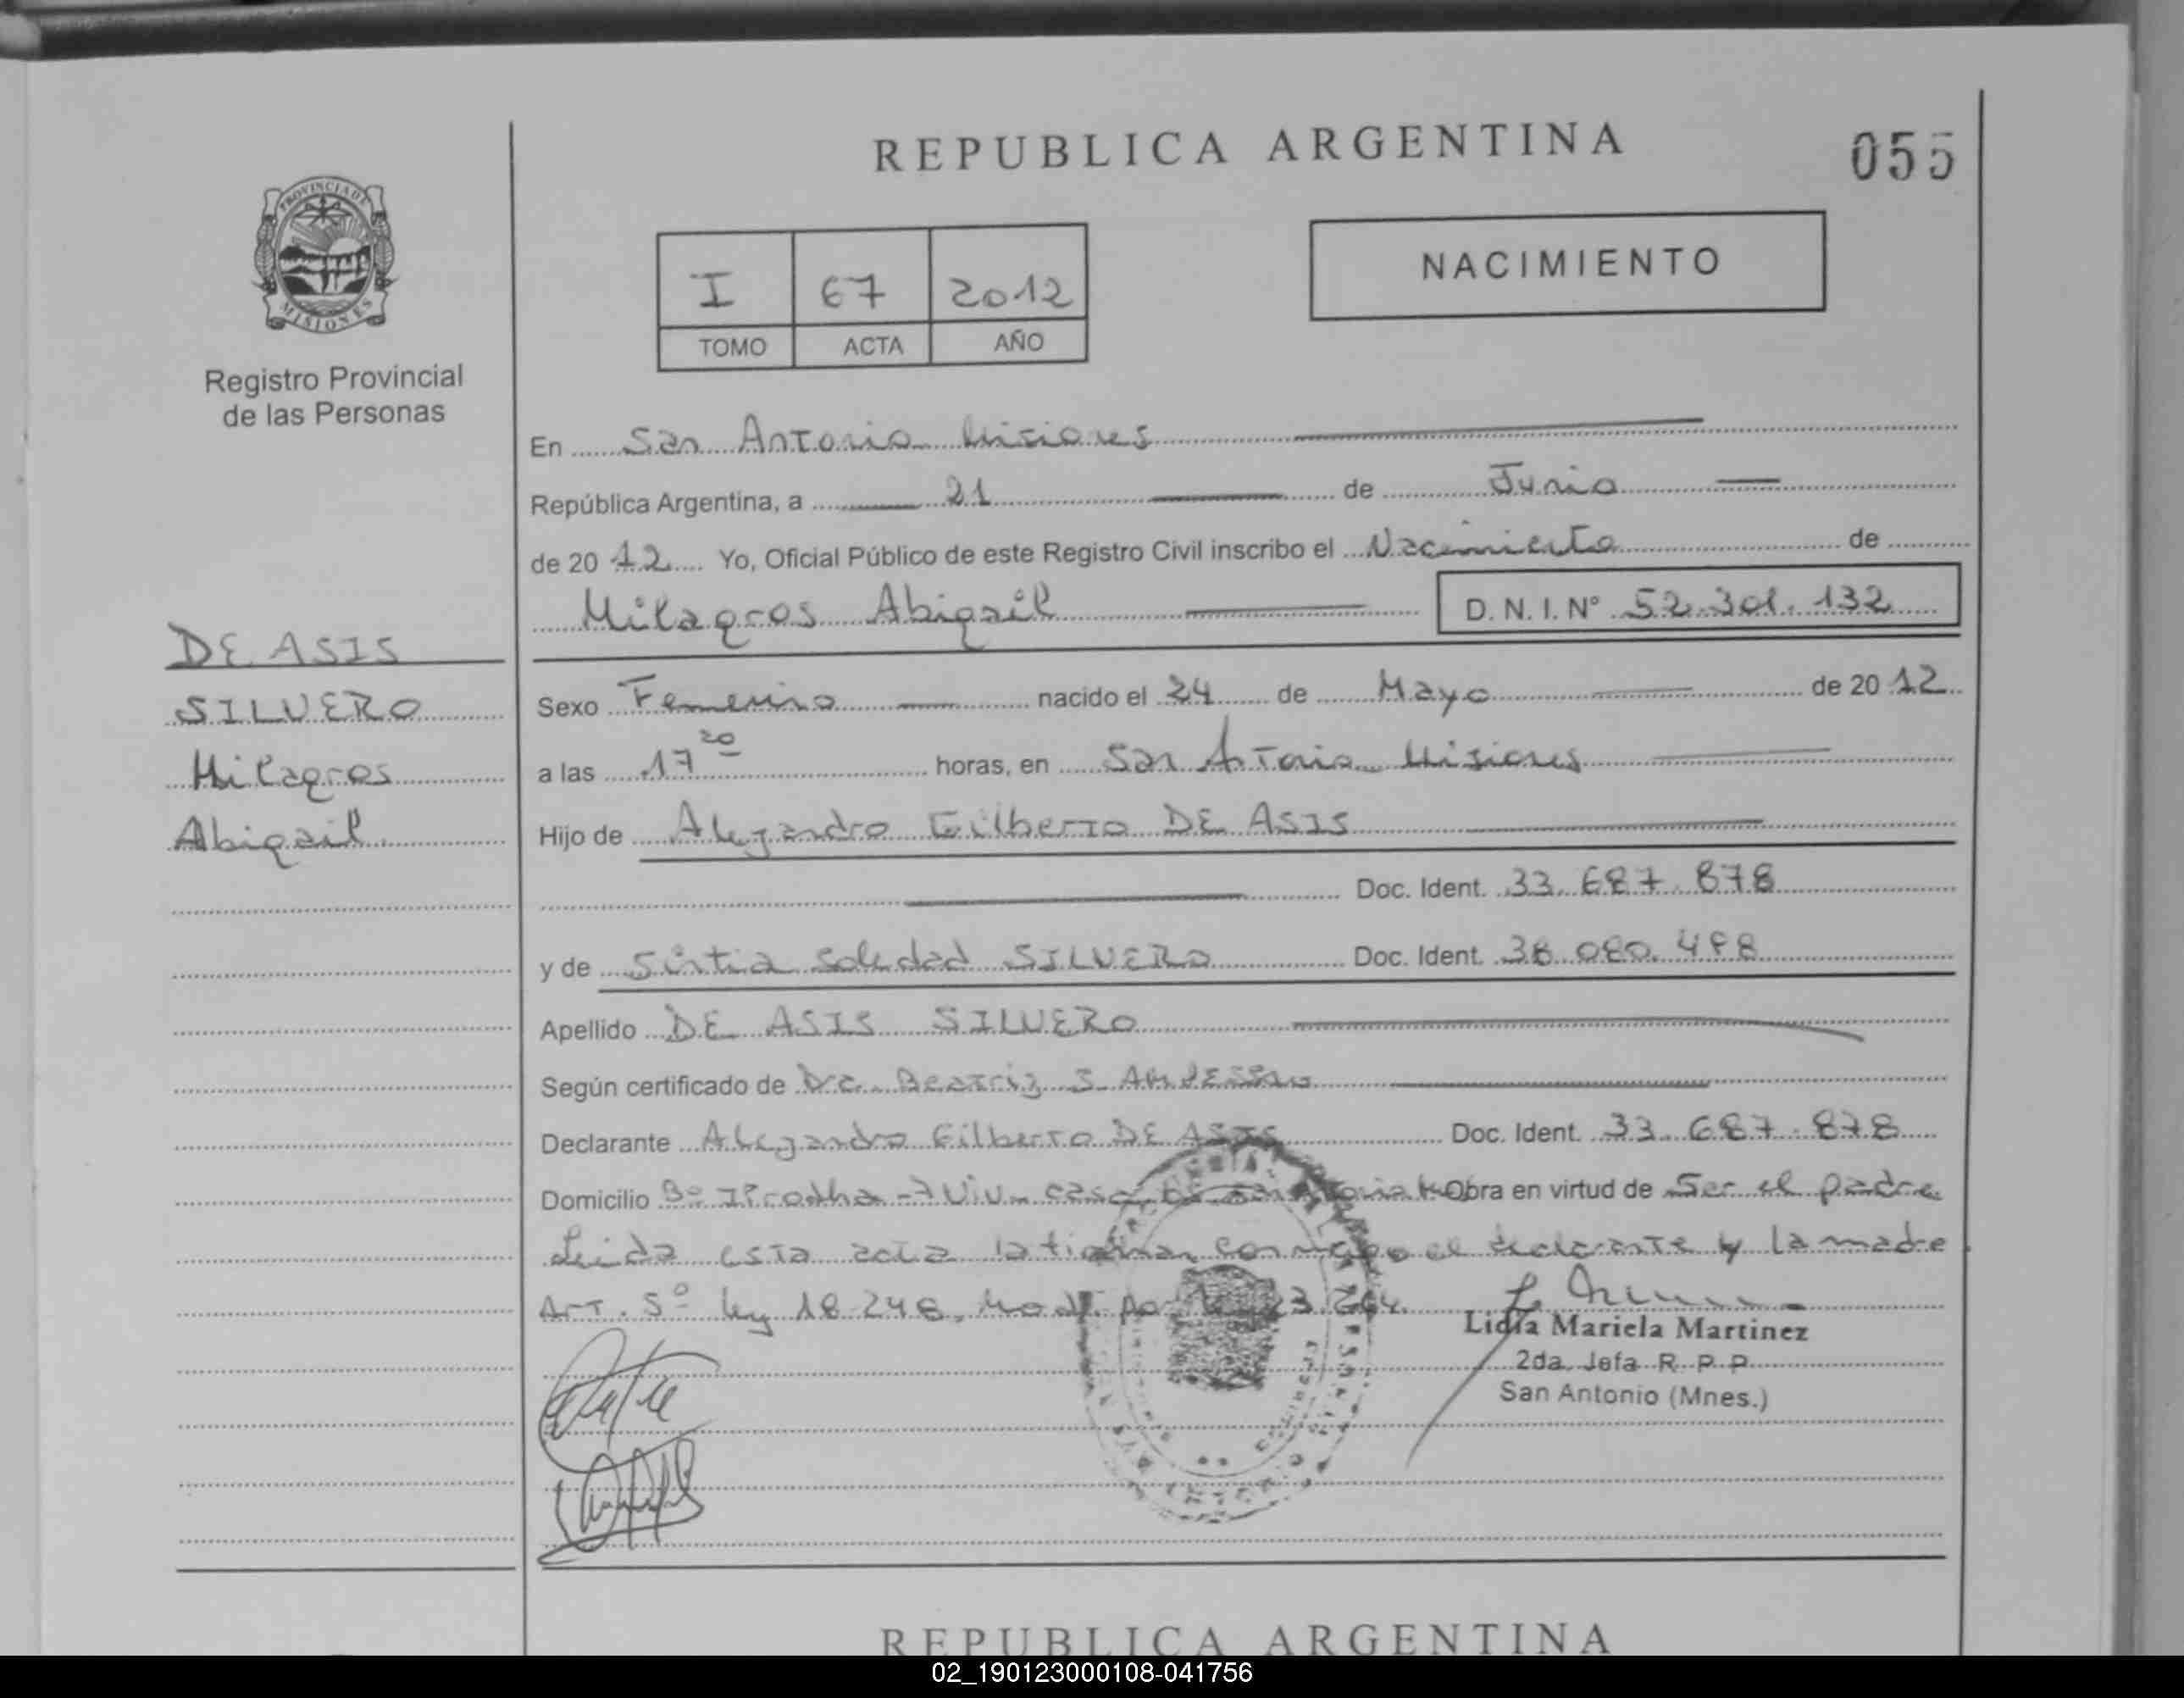 REPUBLICA ARGENTINA
055
PROVINCIA DE
MISIONES
Registro Provincial
de las Personas
I 67 2012
TOMO ACTA AÑO
NACIMIENTO
En San Antonio Misiones
República Argentina, a 21 de Junio
de 20 12 Yo, Oficial Público de este Registro Civil inscribo el Nacimiento de
Milagros Abigail D. N. I. Nº 52.301.132
DE ASIS
SILVERO
Milagros
Abigail
Sexo Femenino nacido el 24 de Mayo de 20 12
a las 17 20 horas, en San Antonio Misiones
Hijo de Alejandro Gilberto DE ASIS
Doc. Ident. 33.687.878
y de Sintia Soledad SILVERO Doc. Ident. 38.080.498
Apellido DE ASIS SILVERO
Según certificado de Dra. Beatriz S.
Declarante Alejandro Gilberto DE ASIS Doc. Ident. 33.687.878
Domicilio Bº Obra en virtud de Ser el padre
Leida esta acta la firman conmigo el declarante y la madre
Art. 5º ley 18.248, Mod. por 23.264.
Lidia Mariela Martinez
2da. Jefa R. P. P.
San Antonio (Mnes.)
REPUBLICA ARGENTINA
02_190123000108-041756